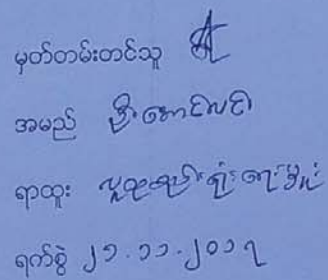 မှတ်တမ်းတင်သူ
အမည် ဦးအောင်လင်း
ရာထူး လူထုစည်းရုံးရေးမှူး
ရက်စွဲ ၂၁.၁၁.၂၀၁၇